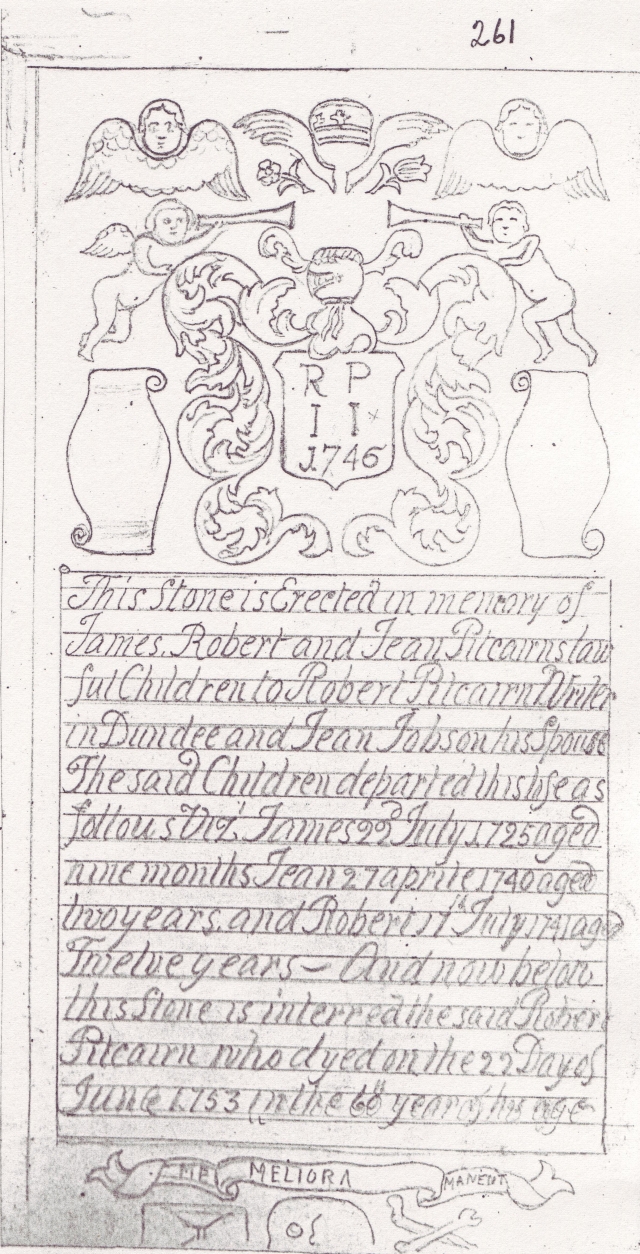 261
R P
I I
1746
This Stone is Erected in memory of
James, Robert and Jean Pitcairns law
ful Children to Robert Pitcairn Writer
in Dundee and Jean Jobson his Spouse
The said Children departed this life as
follows Viz.t James 22d July 1725 aged
nine months Jean 27 aprile 1740 aged
two years and Robert 17th July 1741 aged
Twelve years — And now below
this Stone is interred the said Robert
Pitcairn who dyed on the 22 Day of
June 1753 in the year of his age
ME MELIORA MANENT